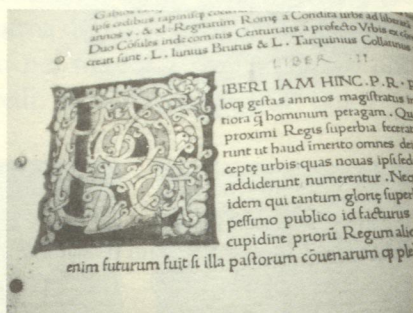 ipis ordibus
annos v. & xl. Regnatum Romę a Condita urbe ad liberatā
Duo Cōsules inde comitiis Centuriatis a
creati sunt. L. Iunius Brutus & L. Tarquinius Collatinus
LIBER II
IBERI IAM HINC. P. R.
gestas annuos magistratus
tiora q̄ hominum peragam.
proximi Regis superbia
runt ut haud imerito omnes
ceptę urbis quas nouas
addiderunt numerentur. Neq
idem qui tantum glorię
pessimo publico id facturus
cupidine priorū Regum
enim futurum fuit si illa pastorum cōuenarum